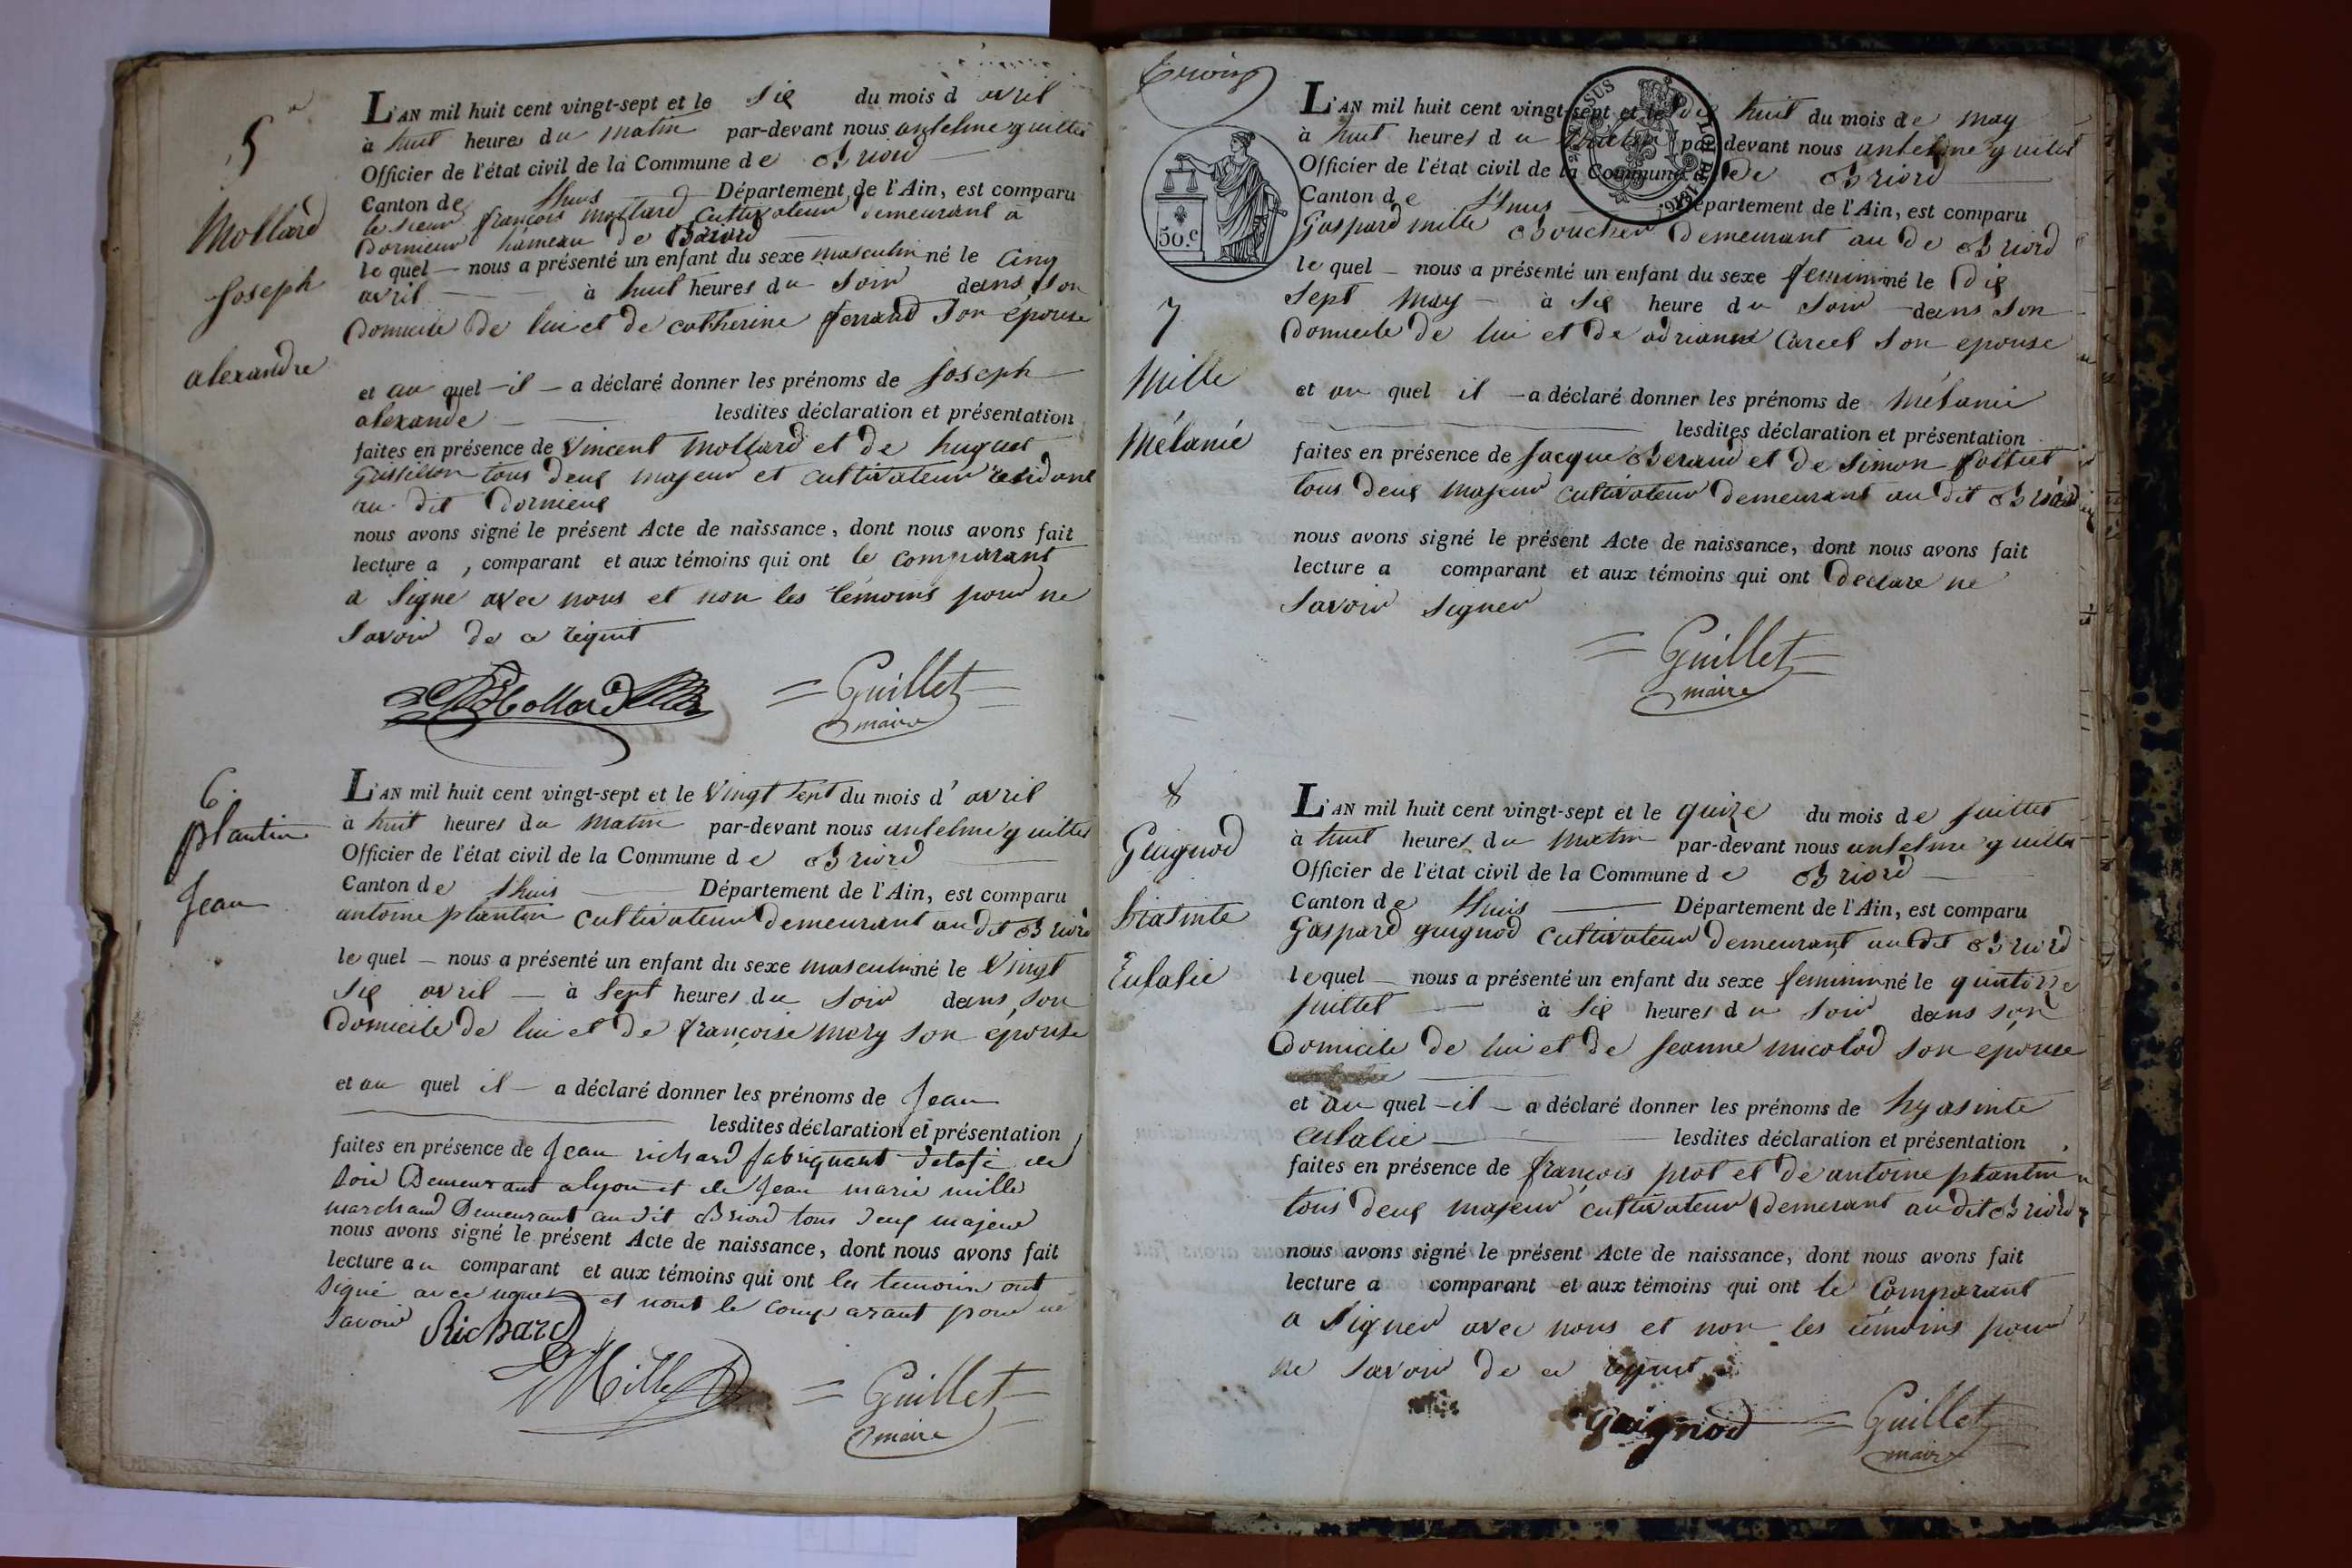 5
Mollard
Joseph
alexandre
L'AN mil huit cent vingt-sept et le six du mois d avril
à huit heures du matin par-devant nous antelme guillet
Officier de l'état civil de la Commune de Briord
Canton de Lhuis Département de l'Ain, est comparu
le sieur françois mollard cultivateur demeurant à
Dornieux hameau de Briord
le quel nous a présenté un enfant du sexe masculin né le Cinq
avril à huit heures du soir dans son
Domicile de lui et de catherine ferrand son épouse
et au quel il a déclaré donner les prénoms de Joseph
alexande lesdites déclaration et présentation
faites en présence de Vincent mollard et de huguet
tous deux majeur et cultivateur residant
au dit Dornieux
nous avons signé le présent Acte de naissance, dont nous avons fait
lecture a , comparant et aux témoins qui ont le comparant
a signé avec nous et non les témoins pour ne
savoir de ce requit
Mollard
Guillet
maire
6.
plantin
Jean
L'AN mil huit cent vingt-sept et le vingt sept du mois d' avril
à huit heures du matin par-devant nous antelme guillet
Officier de l'état civil de la Commune de Briord
Canton de Lhuis Département de l'Ain, est comparu
antoine plantin cultivateur demeurant au dit Briord
le quel nous a présenté un enfant du sexe masculin né le vingt
six avril à sept heures du soir dans son
Domicile de lui et de françoise mery son épouse
et au quel il a déclaré donner les prénoms de Jean
lesdites déclaration et présentation
faites en présence de Jean richard fabriquant detofe de
soie Demeurant alyon et de Jean marie mille
marchand Demeurant au dit Briord tous deux majeur
nous avons signé le présent Acte de naissance, dont nous avons fait
lecture au comparant et aux témoins qui ont les temoins ont
signé avec nous et nont le comparant pour ne
savoir
Richard
Mille
Guillet
maire
50.c
7
Mille
Mélanie
L'AN mil huit cent vingt-sept et le dix huit du mois de may
à huit heures du matin par devant nous antelme guillet
Officier de l'état civil de la Commune de Briord
Canton de Lhuis Département de l'Ain, est comparu
Gaspard mille Boucher Demeurant au de Briord
le quel nous a présenté un enfant du sexe feminin né le Dix
sept may à six heure du soir dans son
Domicile de lui et de adrianne Carcel son epouse
et au quel il a déclaré donner les prénoms de Mélanie
lesdites déclaration et présentation
faites en présence de Jacque Beraud et de Simon
tous deux majeur cultivateur demeurant au dit Briord
nous avons signé le présent Acte de naissance, dont nous avons fait
lecture a comparant et aux témoins qui ont Declare ne
savoir signer
Guillet
maire
8
Guignod
hiasinte
Eulalie
L'AN mil huit cent vingt-sept et le quize du mois de juillet
à huit heures du matin par-devant nous antelme guillet
Officier de l'état civil de la Commune de Briord
Canton de Lhuis Département de l'Ain, est comparu
Gaspard guignod cultivateur demeurant au dit Briord
lequel nous a présenté un enfant du sexe feminin né le quatorze
juillet à six heures du soir dans son
Domicile de lui et de Jeanne micolod son epouse
et au quel il a déclaré donner les prénoms de hyasinte
eulalie lesdites déclaration et présentation
faites en présence de françois prot et de antoine plantin
tous deux majeur cultivateur demerant au dit Briord
nous avons signé le présent Acte de naissance, dont nous avons fait
lecture a comparant et aux témoins qui ont le Comparant
a signer avec nous et non les témoins pour
ne savoir de ce requit
Guignod
Guillet
maire